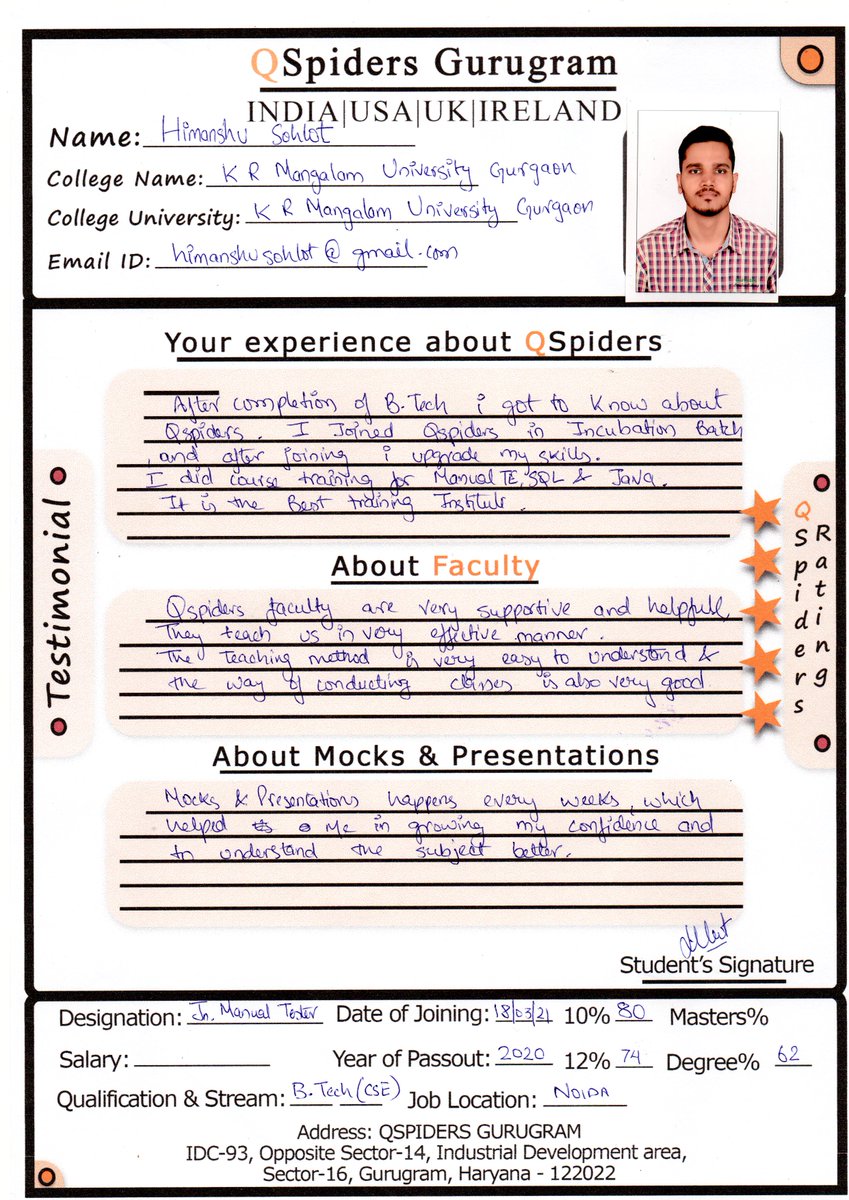 QSpiders Gurugram
INDIA|USA|UK|IRELAND
Name: Himanshu Sohlot
College Name: K R Mangalam University Gurgaon
College University: K R Mangalam University Gurgaon
Email ID: himanshusohlot@gmail.com
Your experience about QSpiders
After completion of B.Tech i got to know about
Qspiders. I Joined Qspiders in Incubation Batch
,and after joining i upgrade my skills.
I did course training for Manual TE, SQL & Java.
It is the Best training Institute.
Testimonial
QSpiders Ratings
About Faculty
Qspiders faculty are very supportive and helpfull,
They teach us in very effective manner.
The Teaching method is very easy to understand &
the way of conducting classes is also very good
About Mocks & Presentations
Mocks & Presentations happens every weeks, which
helped Me in growing my confidence and
to understand the subject better.
Student's Signature
Designation: Jn. Manual Tester Date of Joining: 18/03/21 10% 80 Masters%
Salary: Year of Passout: 2020 12% 74 Degree% 62
Qualification & Stream: B.Tech (CSE) Job Location: NOIDA
Address: QSPIDERS GURUGRAM
IDC-93, Opposite Sector-14, Industrial Development area,
Sector-16, Gurugram, Haryana - 122022